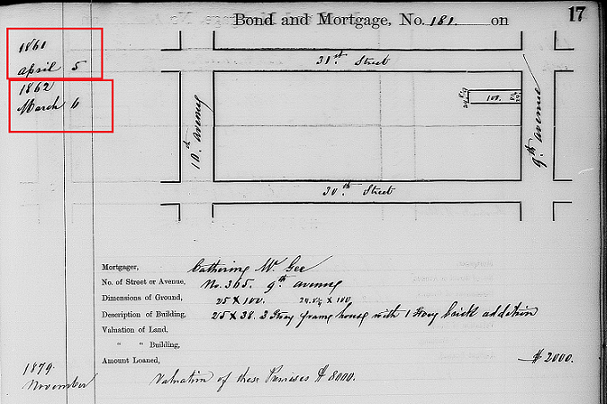 Bond and Mortgage, No. 181. on
17
1861
April 5
1862
March 6
31st. Street
10th. avenue
9th. avenue
100.
30th Street
Mortgager, Catherine Mc Gee
No. of Street or Avenue, No. 365. 9th avenue
Dimensions of Ground, 25 X 100. 24.8¼ X 100
Description of Building, 25 X 38. 3 Story frame house with 1 Story brick addition
Valuation of Land,
" " Building,
Amount Loaned, $ 2000.
1879.
November Valuation of these Premises $ 8000.